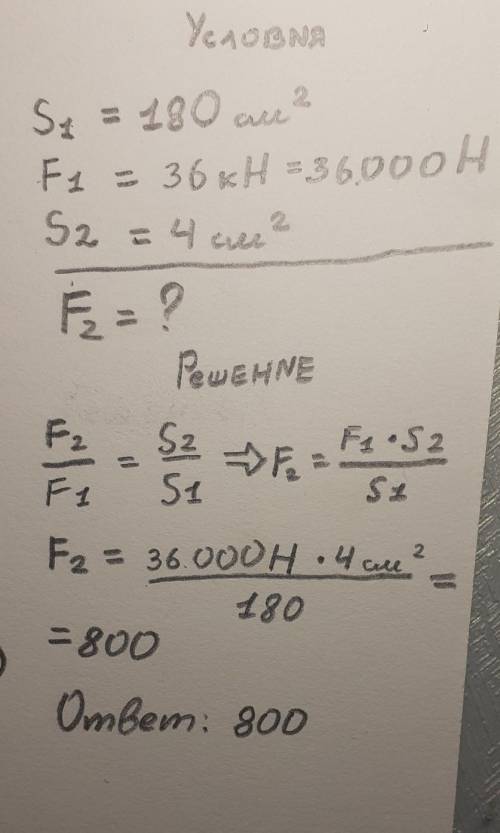 Условия
S1 = 180 см²
F1 = 36 кН = 36.000 Н
S2 = 4 см²
F₂ = ?
Решение
F₂/F1 = S2/S1 ⇒ F₂ = F1 · S2/S1
F₂ = 36.000Н · 4 см²/180 =
= 800
Ответ: 800